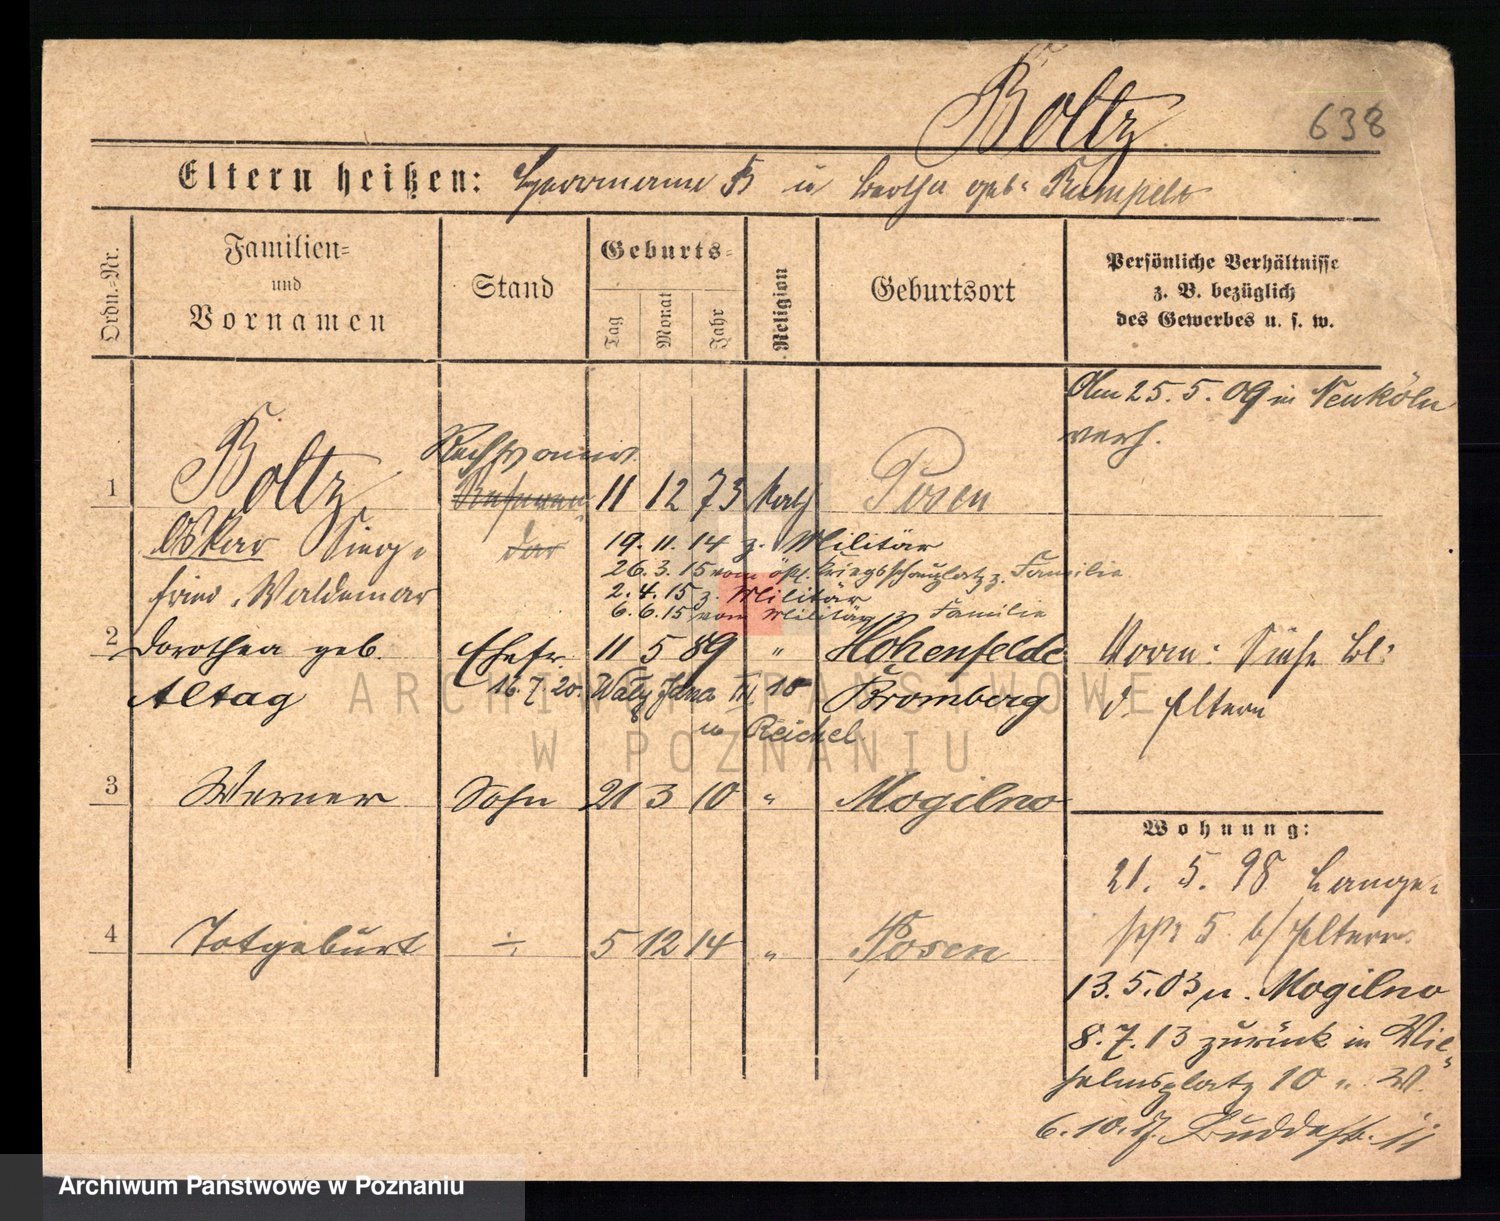 Boltz
638
Eltern heißen: Herrmann B u Bertha geb.
Ordn.-Nr.
Familien-
und
Vornamen
Stand
Geburts-
Tag
Monat
Jahr
Religion
Geburtsort
Persönliche Verhältnisse
z. B. bezüglich
des Gewerbes u. s. w.
Am 25.5.09 in Neuköln
verh.
Rechtsanw.
1 Boltz Referen 11 12 73 kath Posen
Oskar Sieg-
dar
fried, Waldemar
19.11.14 z. Militär
26.3.15 vom östl. Kriegsschauplatz z. Familie
2.4.15 z. Militär
6.6.15 vom Militär z Familie
2 Dorothea geb. Ehefr. 11 5 89 " Hohenfelde
Altag 16.7.20. Bromberg
u Reichel
Vorm: Siehe Bl:
d. Eltern
3 Werner Sohn 21 3 10 " Mogilno
4 Totgeburt ÷ 5 12 14 " Posen
Wohnung:
21. 5. 98 Lange-
str 5 b/ Eltern
13.5.03 n. Mogilno
8.7.13 zurück in Wil-
helmsplatz 10 " W.
6.10.17. Buddestr. 11
ARCHIWUM PAŃSTWOWE
W POZNANIU
Archiwum Państwowe w Poznaniu